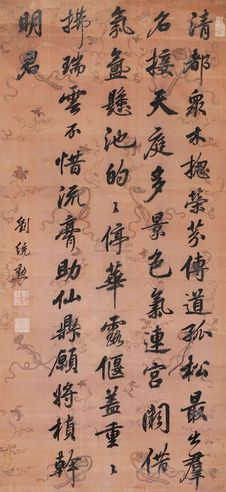 清都衆木揔榮芬傳道孤松最出羣
名接天庭多景色氣連宮闕借
氛氳懸池的〻停華露偃蓋重〻
拂瑞雲不惜流膏助仙鼎願將楨幹
明君
劉統勳